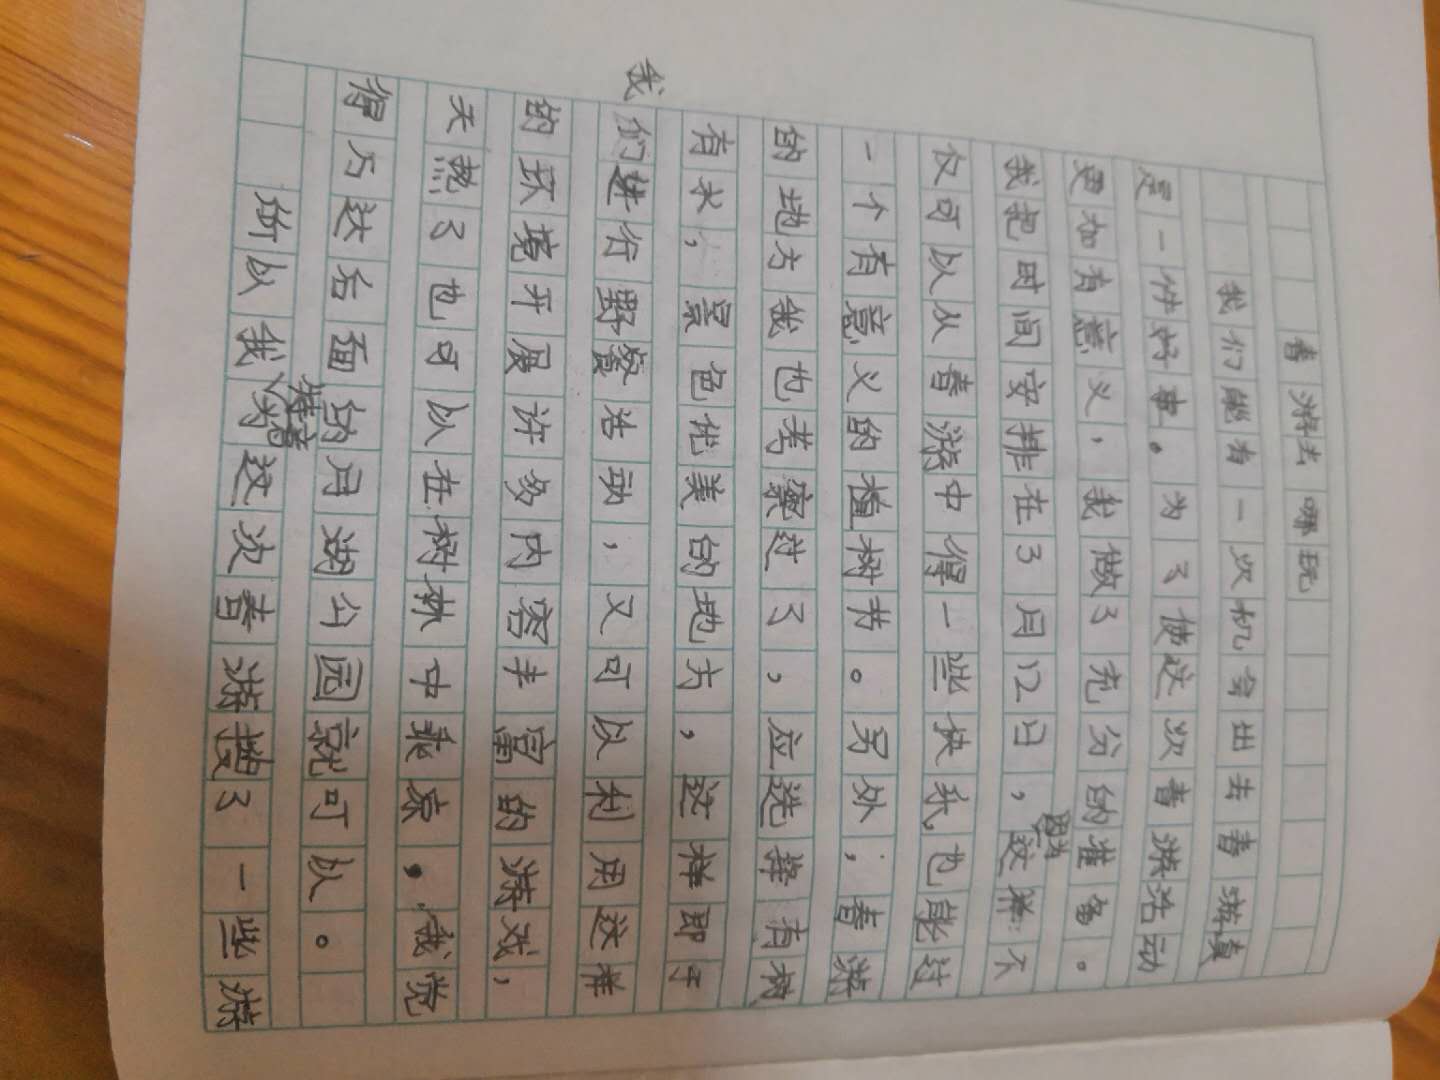 春游去哪玩
我们能有一次机会出去春游真
是一件好事。为了使这次春游活动
更加有意义，我做了充分的准备。
我把时间安排在3月12日，因为这样不
仅可以从春游中得一些快乐也能过
一个有意义的植树节。另外，春游
的地方我也考察过了，应选择有树
有水，景色优美的地方，这样即于
我们进行野餐活动，又可以利用这样
的环境开展许多内容丰富的游戏，
天热了也可以在树林中乘凉，我觉
得万达后面的月湖公园就可以。
所以我特意为这次春游搜了一些游